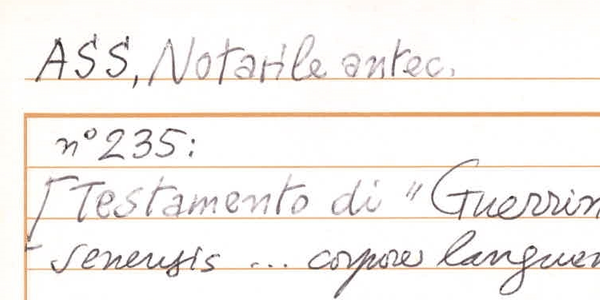 ASS, Notarile antec.
n° 235:
[Testamento di "Guerrin
senensis ... corpore languen